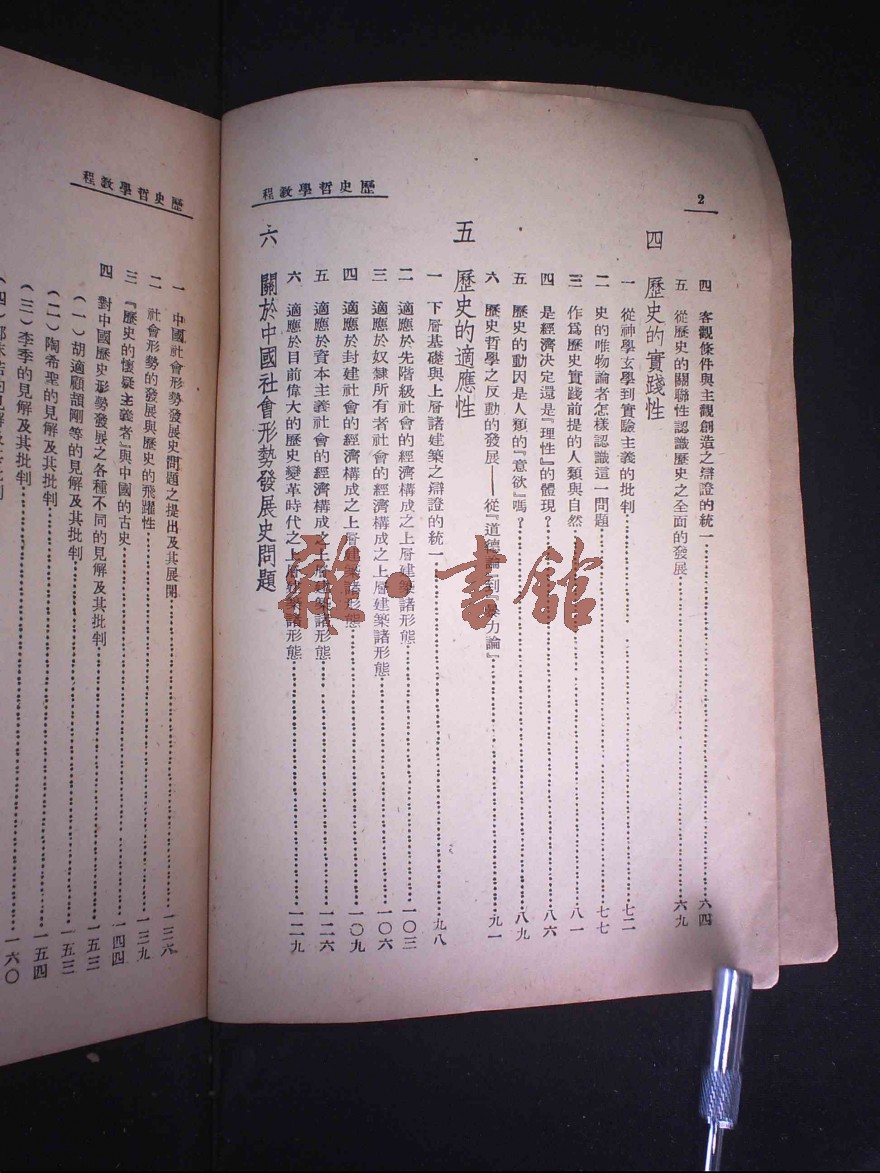 2
歷史哲學教程
四 客觀條件與主觀創造之辯證的統一……六四
五 從歷史的關聯性認識歷史之全面的發展……六九
四 歷史的實踐性
一 從神學玄學到實驗主義的批判……七二
二 史的唯物論者怎樣認識這一問題……七七
三 作爲歷史實踐前提的人類與自然……八一
四 是經濟決定還是『理性』的體現？……八六
五 歷史的動因是人類的『意欲』嗎？……八九
六 歷史哲學之反動的發展——從『道德論』到『暴力論』……九一
五 歷史的適應性
一 下層基礎與上層諸建築之辯證的統一……九八
二 適應於先階級社會的經濟構成之上層建築諸形態……一〇三
三 適應於奴隸所有者社會的經濟構成之上層建築諸形態……一〇六
四 適應於封建社會的經濟構成之上層建築諸形態……一〇九
五 適應於資本主義社會的經濟構成之上層建築諸形態……一二六
六 適應於目前偉大的歷史變革時代之上層建築諸形態……一二九
六 關於中國社會形勢發展史問題
歷史哲學教程
一 中國社會形勢發展史問題之提出及其展開……一三六
二 社會形勢的發展與歷史的飛躍性……一三九
三 『歷史的懷疑主義者』與中國的古史……一四四
四 對中國歷史形勢發展之各種不同的見解及其批判……一五三
（一）胡適顧頡剛等的見解及其批判……一五三
（二）陶希聖的見解及其批判……一五四
（三）李季的見解及其批判……一六〇
雜·書館